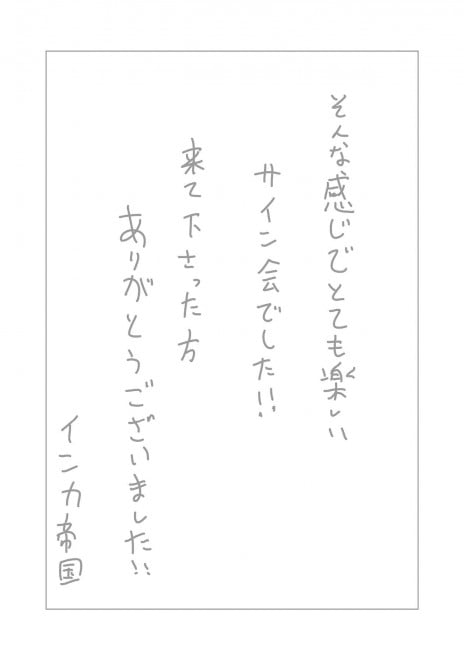 そんな感じでとても楽しい
サイン会でした!!
来て下さった方
ありがとうございました!!
インカ帝国